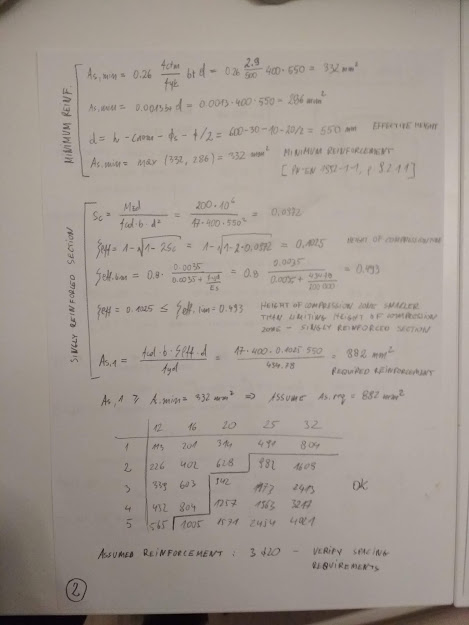 MINIMUM REINF.
As,min = 0.26 fctm/fyk bt d = 0.26 2.9/500 400·550 = 332 mm²
As,min = 0.0013 bt d = 0.0013·400·550 = 286 mm²
d = h - cnom - ϕs - ϕ/2 = 600-30-10-20/2 = 550 mm EFFECTIVE HEIGHT
As,min = max (332, 286) = 332 mm² MINIMUM REINFORCEMENT
[PN-EN 1992-1-1, p 9.2.1.1]
SINGLY REINFORCED SECTION
Sc = MEd/fcd·b·d² = 200·10⁶/17·400·550² = 0.0972
ξeff = 1-√1-2Sc = 1-√1-2·0.0972 = 0.1025 HEIGHT OF COMPRESSION ZONE
ξeff,lim = 0.8 · 0.0035/0.0035 + fyd/Es = 0.8 0.0035/0.0035 + 434.78/200 000 = 0.493
ξeff = 0.1025 ≤ ξeff,lim = 0.493 HEIGHT OF COMPRESSION ZONE SMALLER
THAN LIMITING HEIGHT OF COMPRESSION
ZONE - SINGLY REINFORCED SECTION
As,1 = fcd·b·ξeff·d/fyd = 17·400·0.1025·550/434.78 = 882 mm²
REQUIRED REINFORCEMENT
As,1 ≥ As,min = 332 mm² => ASSUME As,req = 882 mm²
12 16 20 25 32
1 113 201 314 491 804
2 226 402 628 982 1608
3 339 603 942 1473 2413
4 452 804 1257 1963 3217
5 565 1005 1571 2454 4021
OK
ASSUMED REINFORCEMENT : 3 ϕ20 - VERIFY SPACING
REQUIREMENTS
2